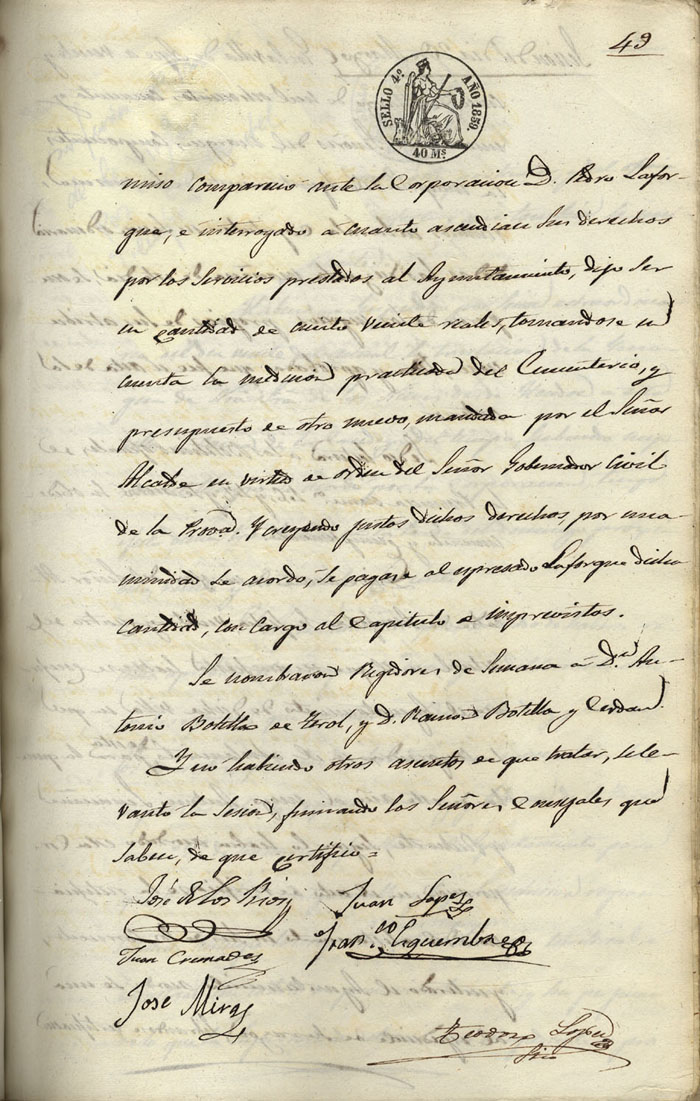 49
SELLO 4º AÑO 1859.
40 Ms.
miso comparecio ante la Corporacion D. Pedro Lafor-
gue, e interrogado a cuanto ascendian sus derechos
por los servicios prestados al Ayuntamiento, dijo ser
en cantidad de ciento veinte reales, tomandose en
cuenta la medicion practicada del Cementerio, y
presupuesto de otro nuevo, mandada por el Señor
Alcalde en virtud de orden del Señor Gobernador Civil
de la Prova. Y creyendo justos dichos derechos por una-
nimidad se acordo, se pagase al espresado Laforgue dicha
cantidad, con cargo al Capitulo de imprevistos.
Se nombraron Regidores de Semana a Dn. An-
tonio Botella de Yerol, y D. Ramon Botella y Cerdan.
Y no habiendo otros asuntos de que tratar, se le-
vanto la Sesion, firmando los Señores Concejales que
saben, de que certifico =
José de los Rios
Juan Lopez
Juan Cremades
Fran.co
José Miras
Teodoro Lopez
Srio